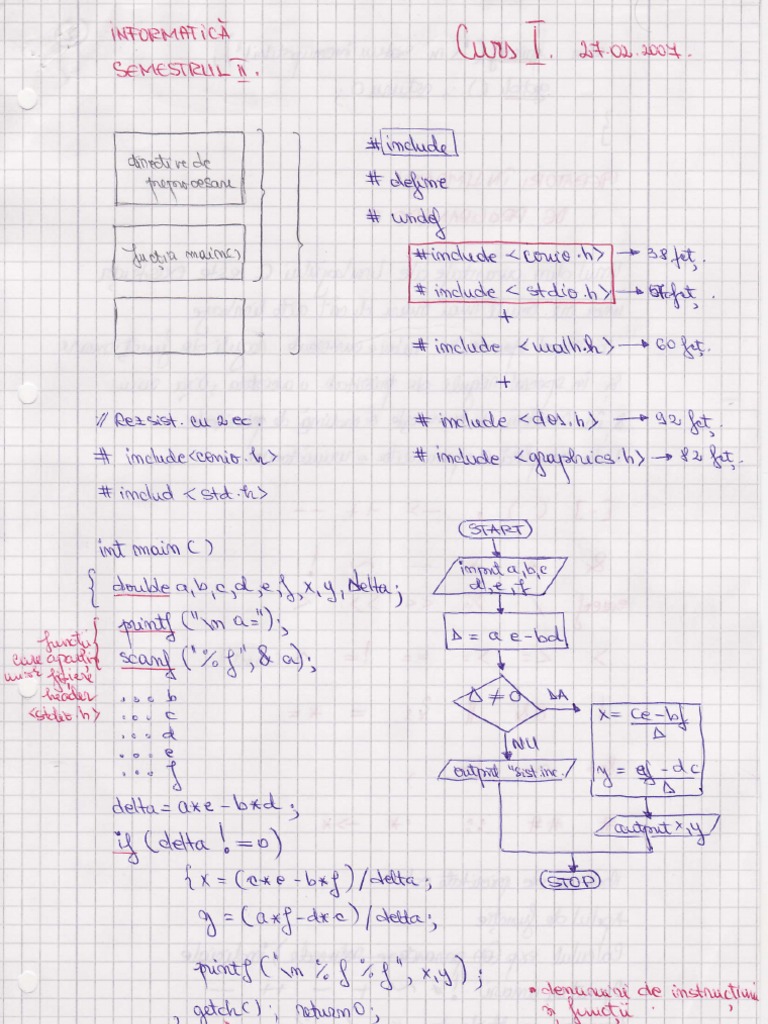 INFORMATICĂ
SEMESTRUL II.
Curs I. 27.02.2007.
directive de
preprocesare
funcția main()
# include
# define
# undef
# include <conio.h> → 38 fcț.
# include <stdio.h> → fcț.
+
# include <math.h> → 60 fcț.
+
# include <dos.h> → 92 fcț.
# include <graphics.h> → 82 fcț.
// Rez sist. cu 2 ec.
# include<conio.h>
# includ <std.h>
int main ( )
{ double a, b, c, d, e, f, x, y, Delta;
printf ("\n a=");
scanf ("%f", & a);
... b
... c
... d
... e
... f
funcții
care aparțin
unor fișiere
header
<stdio.h>
delta = a*e - b*d ;
if (delta != 0)
{ x = (c*e - b*f) / delta ;
y = (a*f - d*c) / delta ;
printf ("\n %f %f", x, y) ;
getch() ; return 0;
START
input a, b, c
d, e, f
Δ = a e - bd
Δ ≠ 0
DA
NU
x = ce - bf / Δ
y = af - dc / Δ
output "sist. inc.
output x, y
STOP
• denumiri de instrucțiuni
și funcții